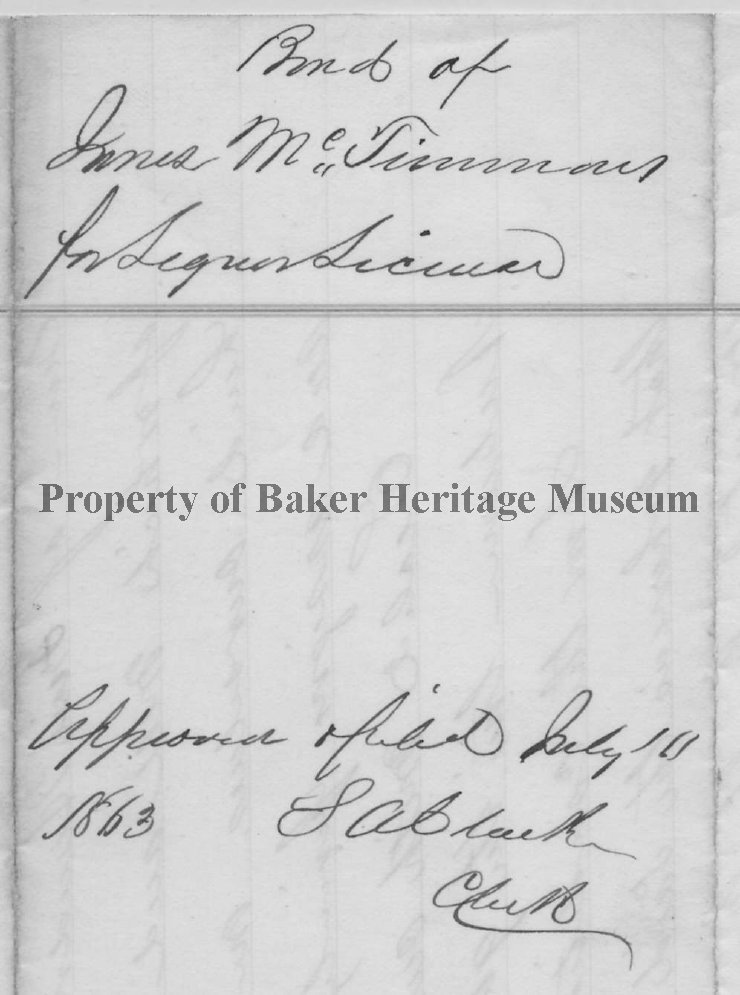 Bond of
James McTimmons
for Liquor License
Property of Baker Heritage Museum
Approved & filed July 11
1863 S A Clarke
Clerk